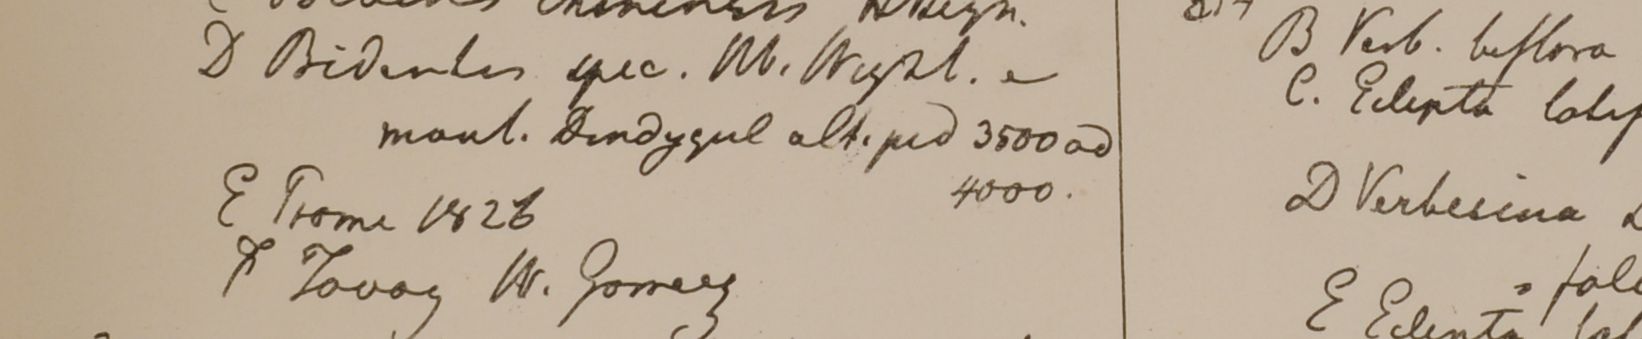 chinensis
D Bidentis spec. W. Wight. e
mont. Dindygul alt. ped 3500 ad
4000.
E Prome 1826
F Tavoy W. Gomez
B Verb. biflora
C. Eclipta
D Verbesina
E Eclipta